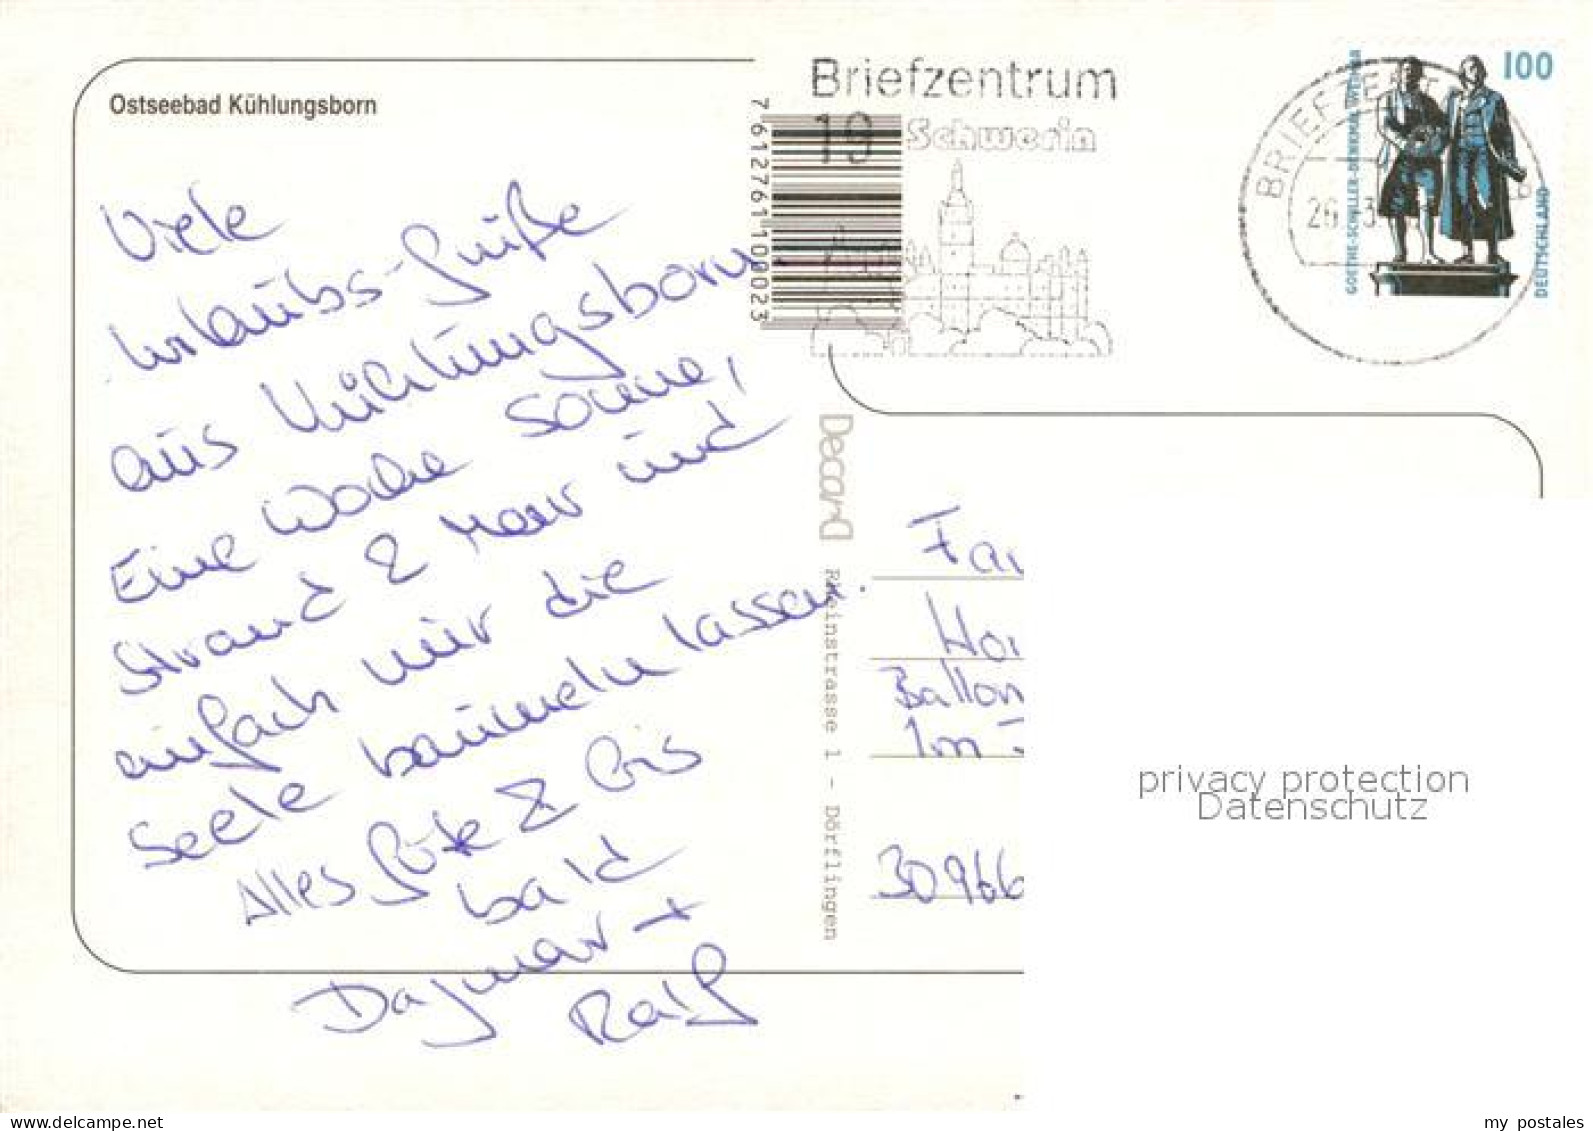 Ostseebad Kühlungsborn
Viele
Urlaubs-Grüße
aus Kühlungsborn.
Eine Woche Sonne,
Strand & Meer und
einfach mir die
Seele baumeln lassen.
Alles Gute & bis
bald
Dagmar +
Ralf
7612761100023
Briefzentrum
19
Schwerin
BRIEFZENT
26
100
GOETHE-SCHILLER-DENKMAL WEIMAR
DEUTSCHLAND
Decard
Rheinstrasse 1 - Dörflingen
Fa
Ho
Ballon
Im
30966
privacy protection
Datenschutz
www.delcampe.net
my_postales